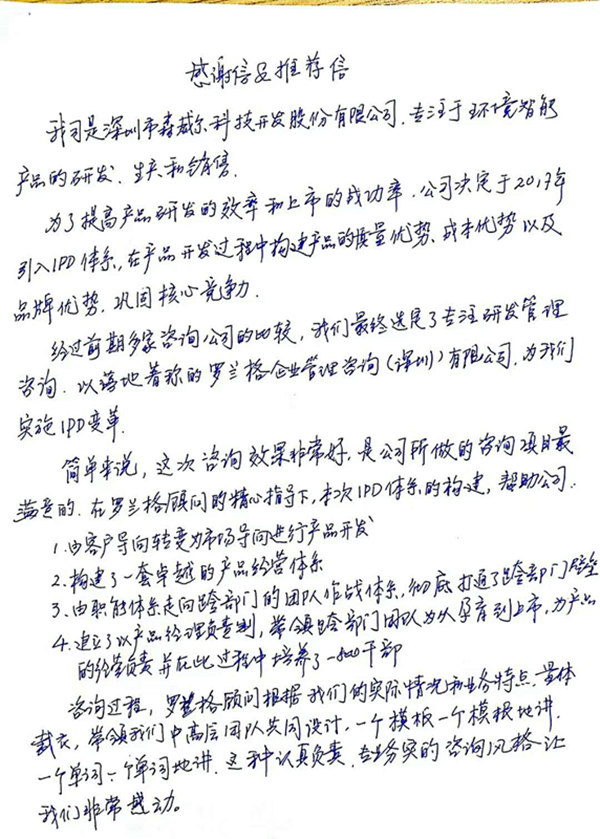 感谢信及推荐信
我司是深圳市森威尔科技开发股份有限公司,专注于环境智能
产品的研发、生产和销售.
为了提高产品研发的效率和上市的成功率,公司决定于2017年
引入IPD体系,在产品开发过程中构建产品的质量优势、成本优势以及
品牌优势,巩固核心竞争力.
经过前期多家咨询公司的比较,我们最终选定了专注研发管理
咨询、以落地著称的罗兰格企业管理咨询(深圳)有限公司,为我们
实施IPD变革.
简单来说,这次咨询效果非常好,是公司所做的咨询项目最
满意的.在罗兰格顾问的精心指导下,本次IPD体系的构建,帮助公司:
1.由客户导向转变为市场导向进行产品开发
2.构建了一套卓越的产品经营体系
3.由职能体系走向跨部门的团队作战体系,彻底打通了跨部门壁垒
4.建立了以产品经理负责制,带领跨部门团队为从孕育到上市,为产品
的经营负责并在此过程中培养了一批干部
咨询过程,罗兰格顾问根据我们的实际情况和业务特点,量体
裁衣,带领我们中高层团队共同设计,一个模板一个模板地讲,
一个单词一个单词地讲.这种认真负责、专业务实的咨询风格让
我们非常感动。